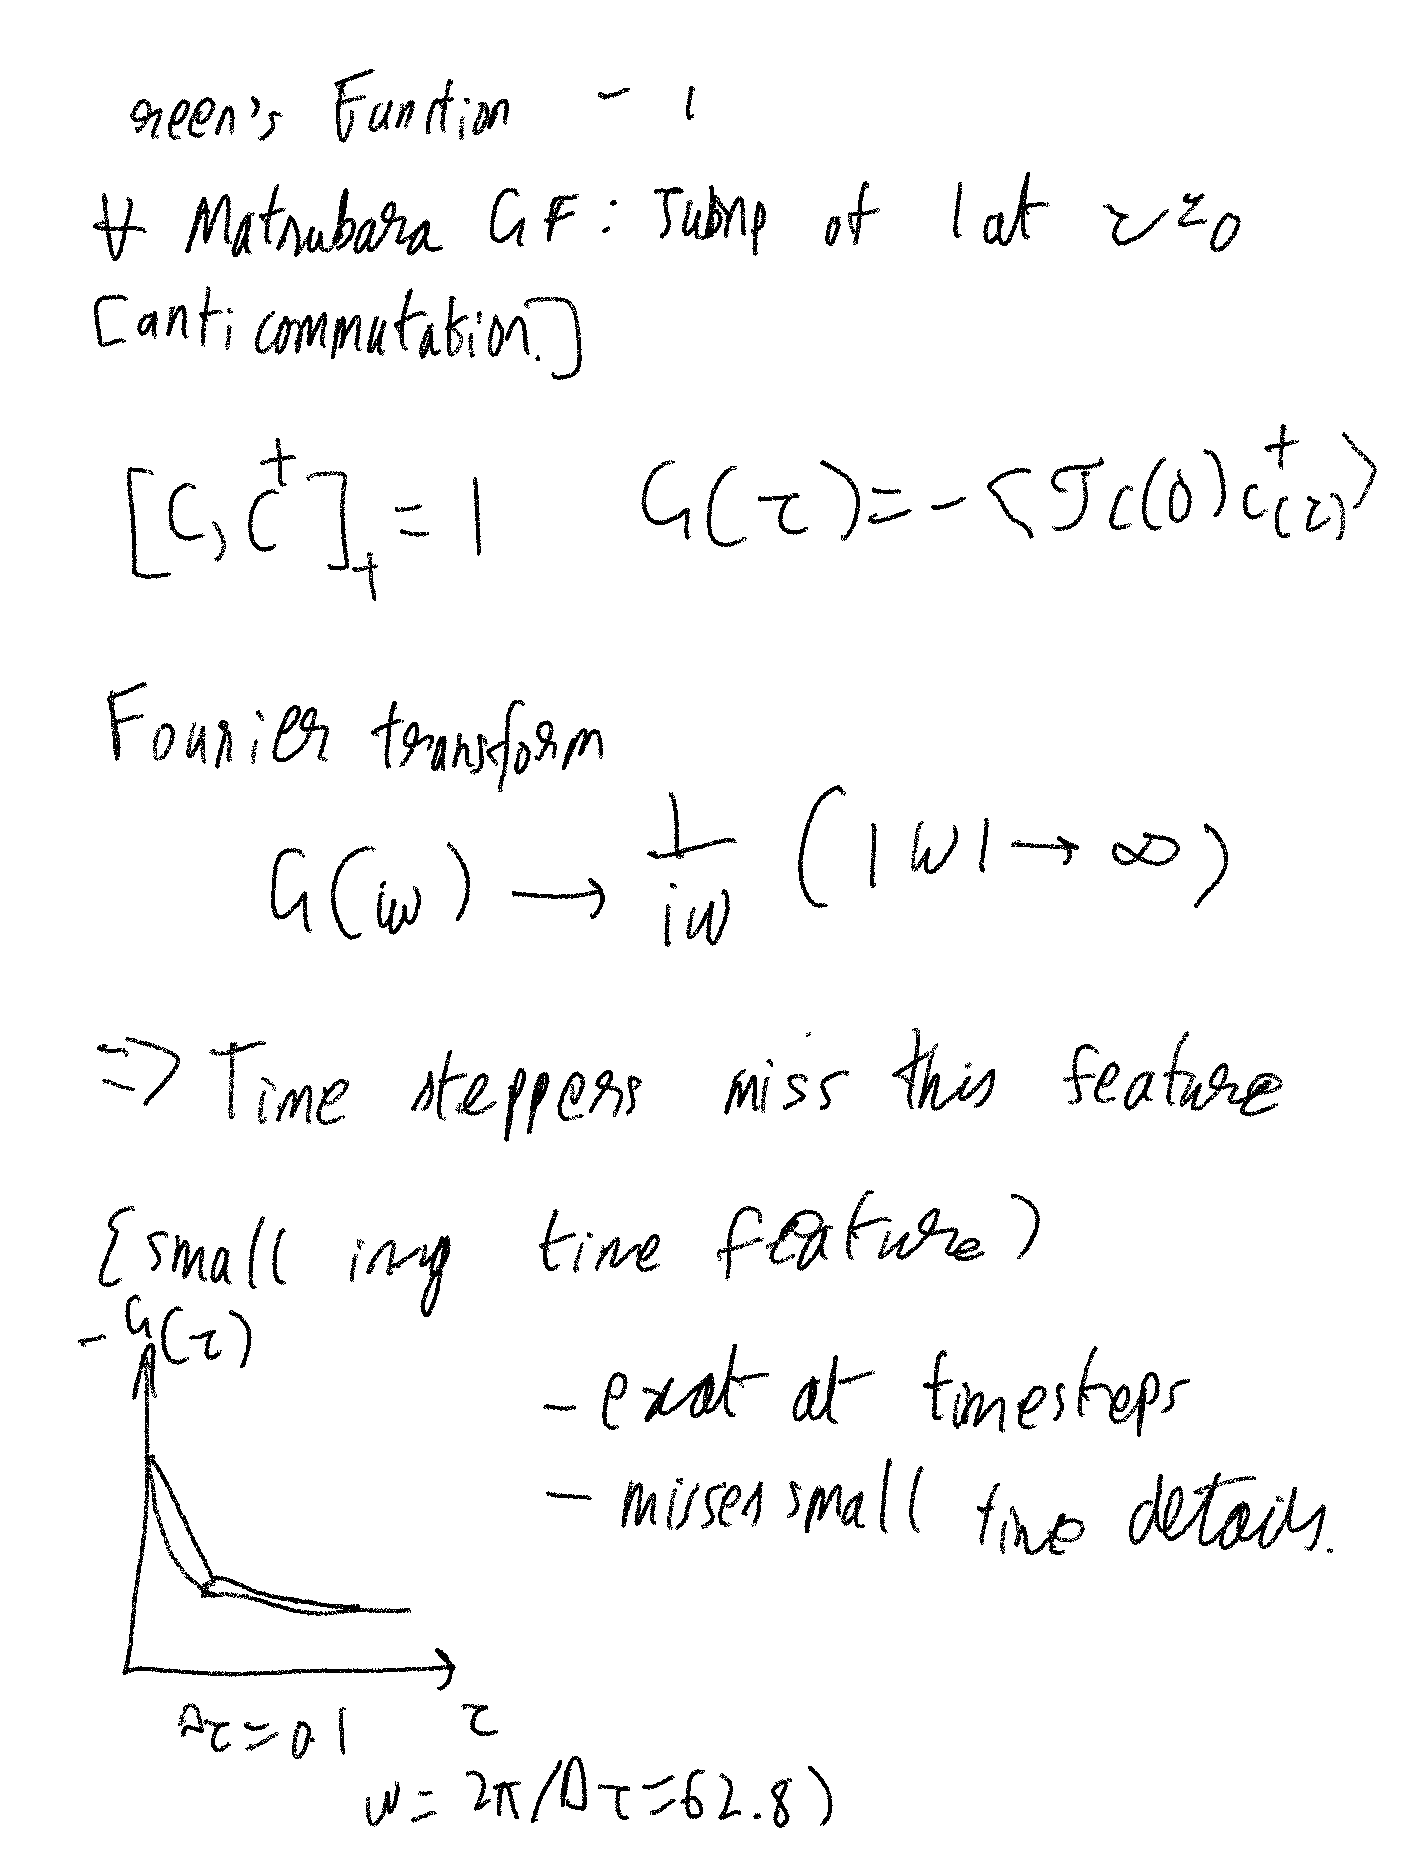 reen's Function - 1
∀ Matsubara GF: Jump of 1 at τ=0
[anti commutation.]
[C, C†]₊ = 1 G(τ) = -⟨𝒯c(0)c†(τ)⟩
Fourier transform
G(iω) → 1/iω (|ω| → ∞)
=> Time steppers miss this feature
{small img time feature)
-G(τ)
- exat at timesteps
- misses small time details.
Δτ=0.1 τ
ω = 2π/Δτ=62.8)